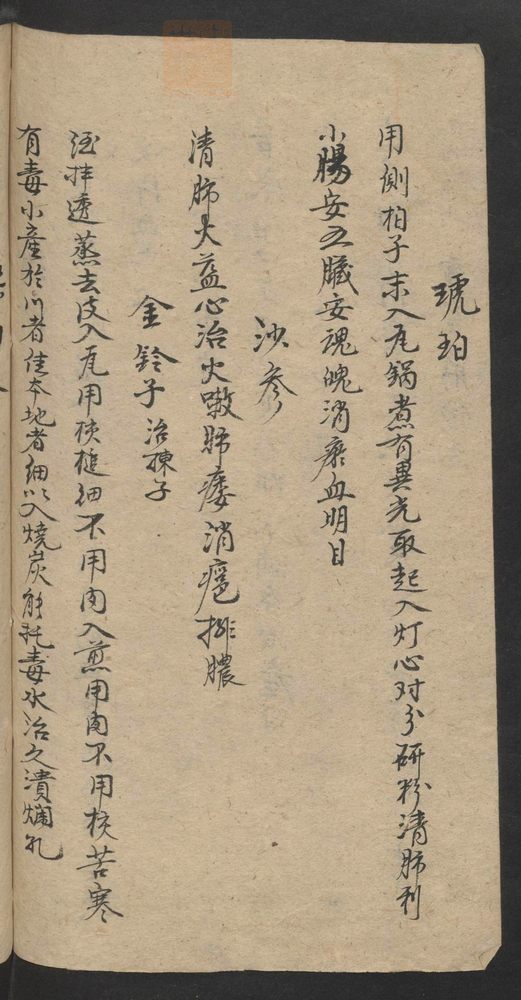 琥珀
用側柏子末入瓦鍋煮有異光取起入灯心对分研粉清肺利
小腸安五臟安魂魄消瘀血明目
沙參
清肺火益心治火嗽肺痿消癰排膿
金鈴子 治楝子
酒拌透蒸去皮入瓦用核槌细不用肉入煎用肉不用核苦寒
有毒小產於川者佳本地者细以入燒炭能托毒水治久潰爛孔